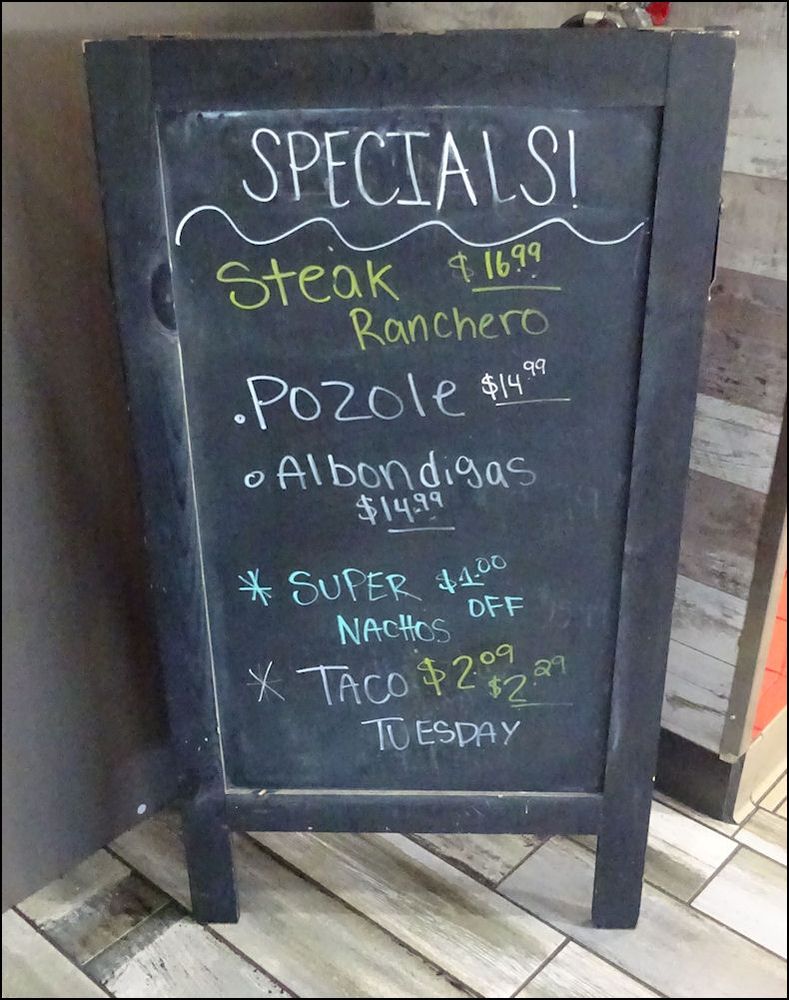 SPECIALS!
Steak $16.99
Ranchero
.Pozole $14.99
o Albondigas
$14.99
* SUPER $1.00
NACHOS OFF
* TACO $2.09 $2.29
TUESDAY